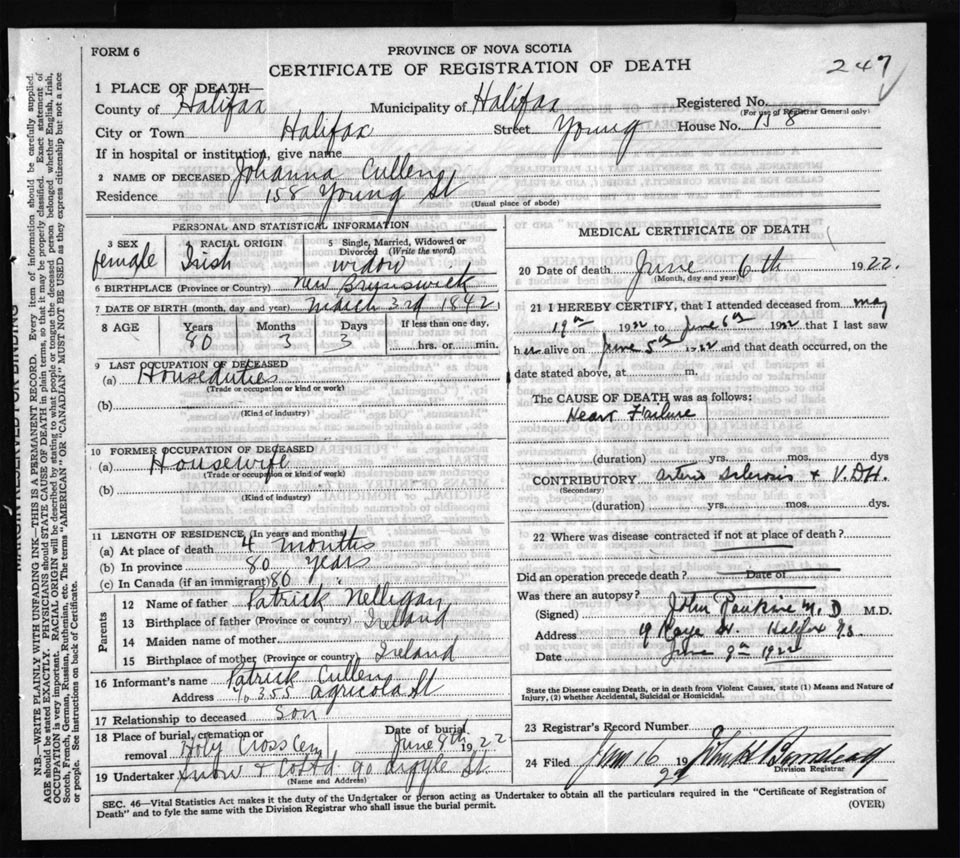 FORM 6
PROVINCE OF NOVA SCOTIA
CERTIFICATE OF REGISTRATION OF DEATH
247
1 PLACE OF DEATH—
County of Halifax Municipality of Halifax Registered No.
(For use of Registrar General only)
City or Town Halifax Street Young House No. 158
If in hospital or institution, give name
2 NAME OF DECEASED Johanna Cullen
Residence 158 Young St
(Usual place of abode)
PERSONAL AND STATISTICAL INFORMATION
3 SEX female
4 RACIAL ORIGIN Irish
5 Single, Married, Widowed or Divorced (Write the word) widow
6 BIRTHPLACE (Province or Country) New Brunswick
7 DATE OF BIRTH (month, day and year) March 3rd 1842
8 AGE Years 80 Months 3 Days 3 If less than one day, hrs. or min.
9 LAST OCCUPATION OF DECEASED
(a) Houseduties
(Trade or occupation or kind or work)
(b)
(Kind of industry)
10 FORMER OCCUPATION OF DECEASED
(a) Housewife
(Trade or occupation or kind of work)
(b)
(Kind of industry)
11 LENGTH OF RESIDENCE (In years and months)
(a) At place of death 4 months
(b) In province 80 years
(c) In Canada (if an immigrant) 80
Parents
12 Name of father Patrick Nelligan
13 Birthplace of father (Province or country) Ireland
14 Maiden name of mother
15 Birthplace of mother (Province or country) Ireland
16 Informant's name Patrick Cullen
Address 355 Agricola St
17 Relationship to deceased Son
18 Place of burial, cremation or removal Holy Cross Cem Date of burial June 9th 1922
19 Undertaker Snow & Co Ltd 90 Argyle St
(Name and Address)
MEDICAL CERTIFICATE OF DEATH
20 Date of death June 6th 1922.
(Month, day and year)
21 I HEREBY CERTIFY, that I attended deceased from May
19th 1922 to June 6th 1922 that I last saw
her alive on June 5th 1922 and that death occurred, on the
date stated above, at m.
The CAUSE OF DEATH was as follows:
Heart Failure
(duration) yrs. mos. dys
CONTRIBUTORY Arterio Sclerosis + V.D.H.
(Secondary)
(duration) yrs. mos. dys.
22 Where was disease contracted if not at place of death?
Did an operation precede death? Date of
Was there an autopsy?
(Signed) John M.D M.D.
Address 9 Kaye St. Halifax N.S.
Date June 9th 1922
State the Disease causing Death, or in death from Violent Causes, state (1) Means and Nature of
Injury, (2) whether Accidental, Suicidal or Homicidal.
23 Registrar's Record Number
24 Filed June 16 1922
Division Registrar
SEC. 46—Vital Statistics Act makes it the duty of the Undertaker or person acting as Undertaker to obtain all the particulars required in the "Certificate of Registration of
Death" and to fyle the same with the Division Registrar who shall issue the burial permit.
(OVER)
MARGIN RESERVED FOR BINDING
N.B.—WRITE PLAINLY WITH UNFADING INK—THIS IS A PERMANENT RECORD. Every item of information should be carefully supplied.
AGE should be stated EXACTLY. PHYSICIANS should STATE CAUSE OF DEATH in plain terms, so that it may be properly classified. Exact statement of
OCCUPATION is very important. RACIAL ORIGIN will be described by stating to what people or tongue the deceased person belonged whether English, Irish,
Scotch, French, German, Russian, Ruthenian, etc. The terms "AMERICAN" OR "CANADIAN" MUST NOT BE USED as they express citizenship but not a race
or people. See instructions on back of Certificate.